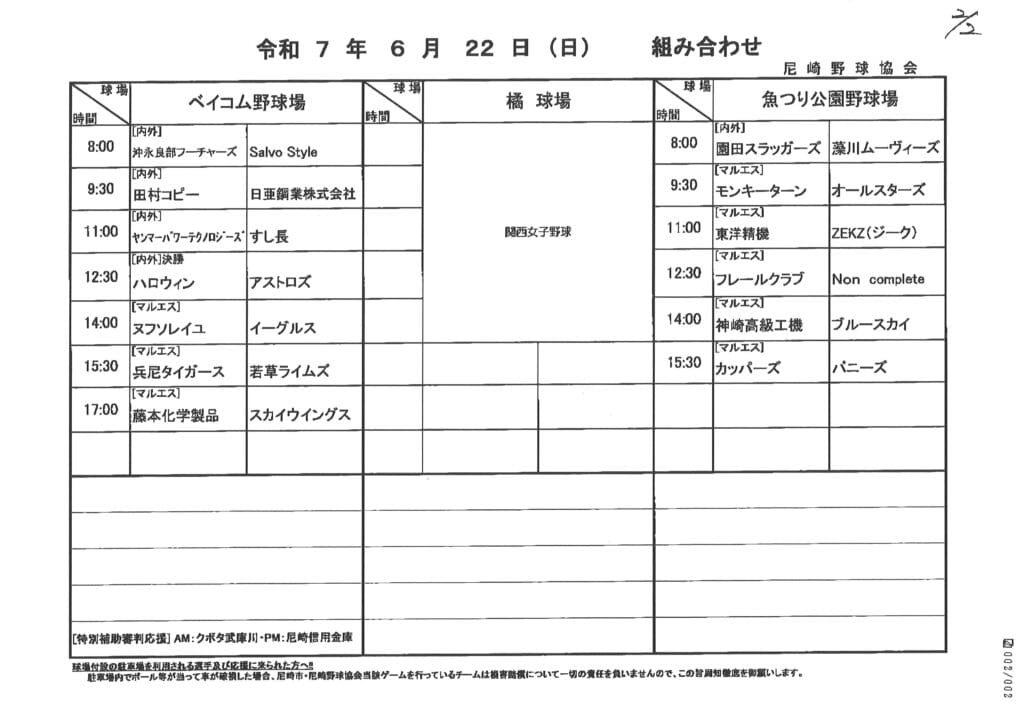 2/2
令和 7 年 6 月 22 日 (日) 組み合わせ
尼崎野球協会
球場 時間 ベイコム野球場 球場 時間 橘 球場 球場 時間 魚つり公園野球場
8:00 [内外] 沖永良部フーチャーズ Salvo Style 8:00 [内外] 園田スラッガーズ 藻川ムーヴィーズ
9:30 [内外] 田村コピー 日亜鋼業株式会社 9:30 [マルエス] モンキーターン オールスターズ
11:00 [内外] ﾔﾝﾏｰﾊﾟﾜｰﾃｸﾉﾛｼﾞｰｽﾞ すし長 関西女子野球 11:00 [マルエス] 東洋精機 ZEKZ(ジーク)
12:30 [内外]決勝 ハロウィン アストロズ 12:30 [マルエス] フレールクラブ Non complete
14:00 [マルエス] ヌフソレイユ イーグルス 14:00 [マルエス] 神崎高級工機 ブルースカイ
15:30 [マルエス] 兵尼タイガース 若草ライムズ 15:30 [マルエス] カッパーズ バニーズ
17:00 [マルエス] 藤本化学製品 スカイウイングス
[特別補助審判応援] AM:クボタ武庫川・PM:尼崎信用金庫
球場付設の駐車場を利用される選手及び応援に来られた方へ!!
駐車場内でボール等が当って車が破損した場合、尼崎市・尼崎野球協会当該ゲームを行っているチームは損害賠償について一切の責任を負いませんので、この旨周知徹底を御願いします。
002/002